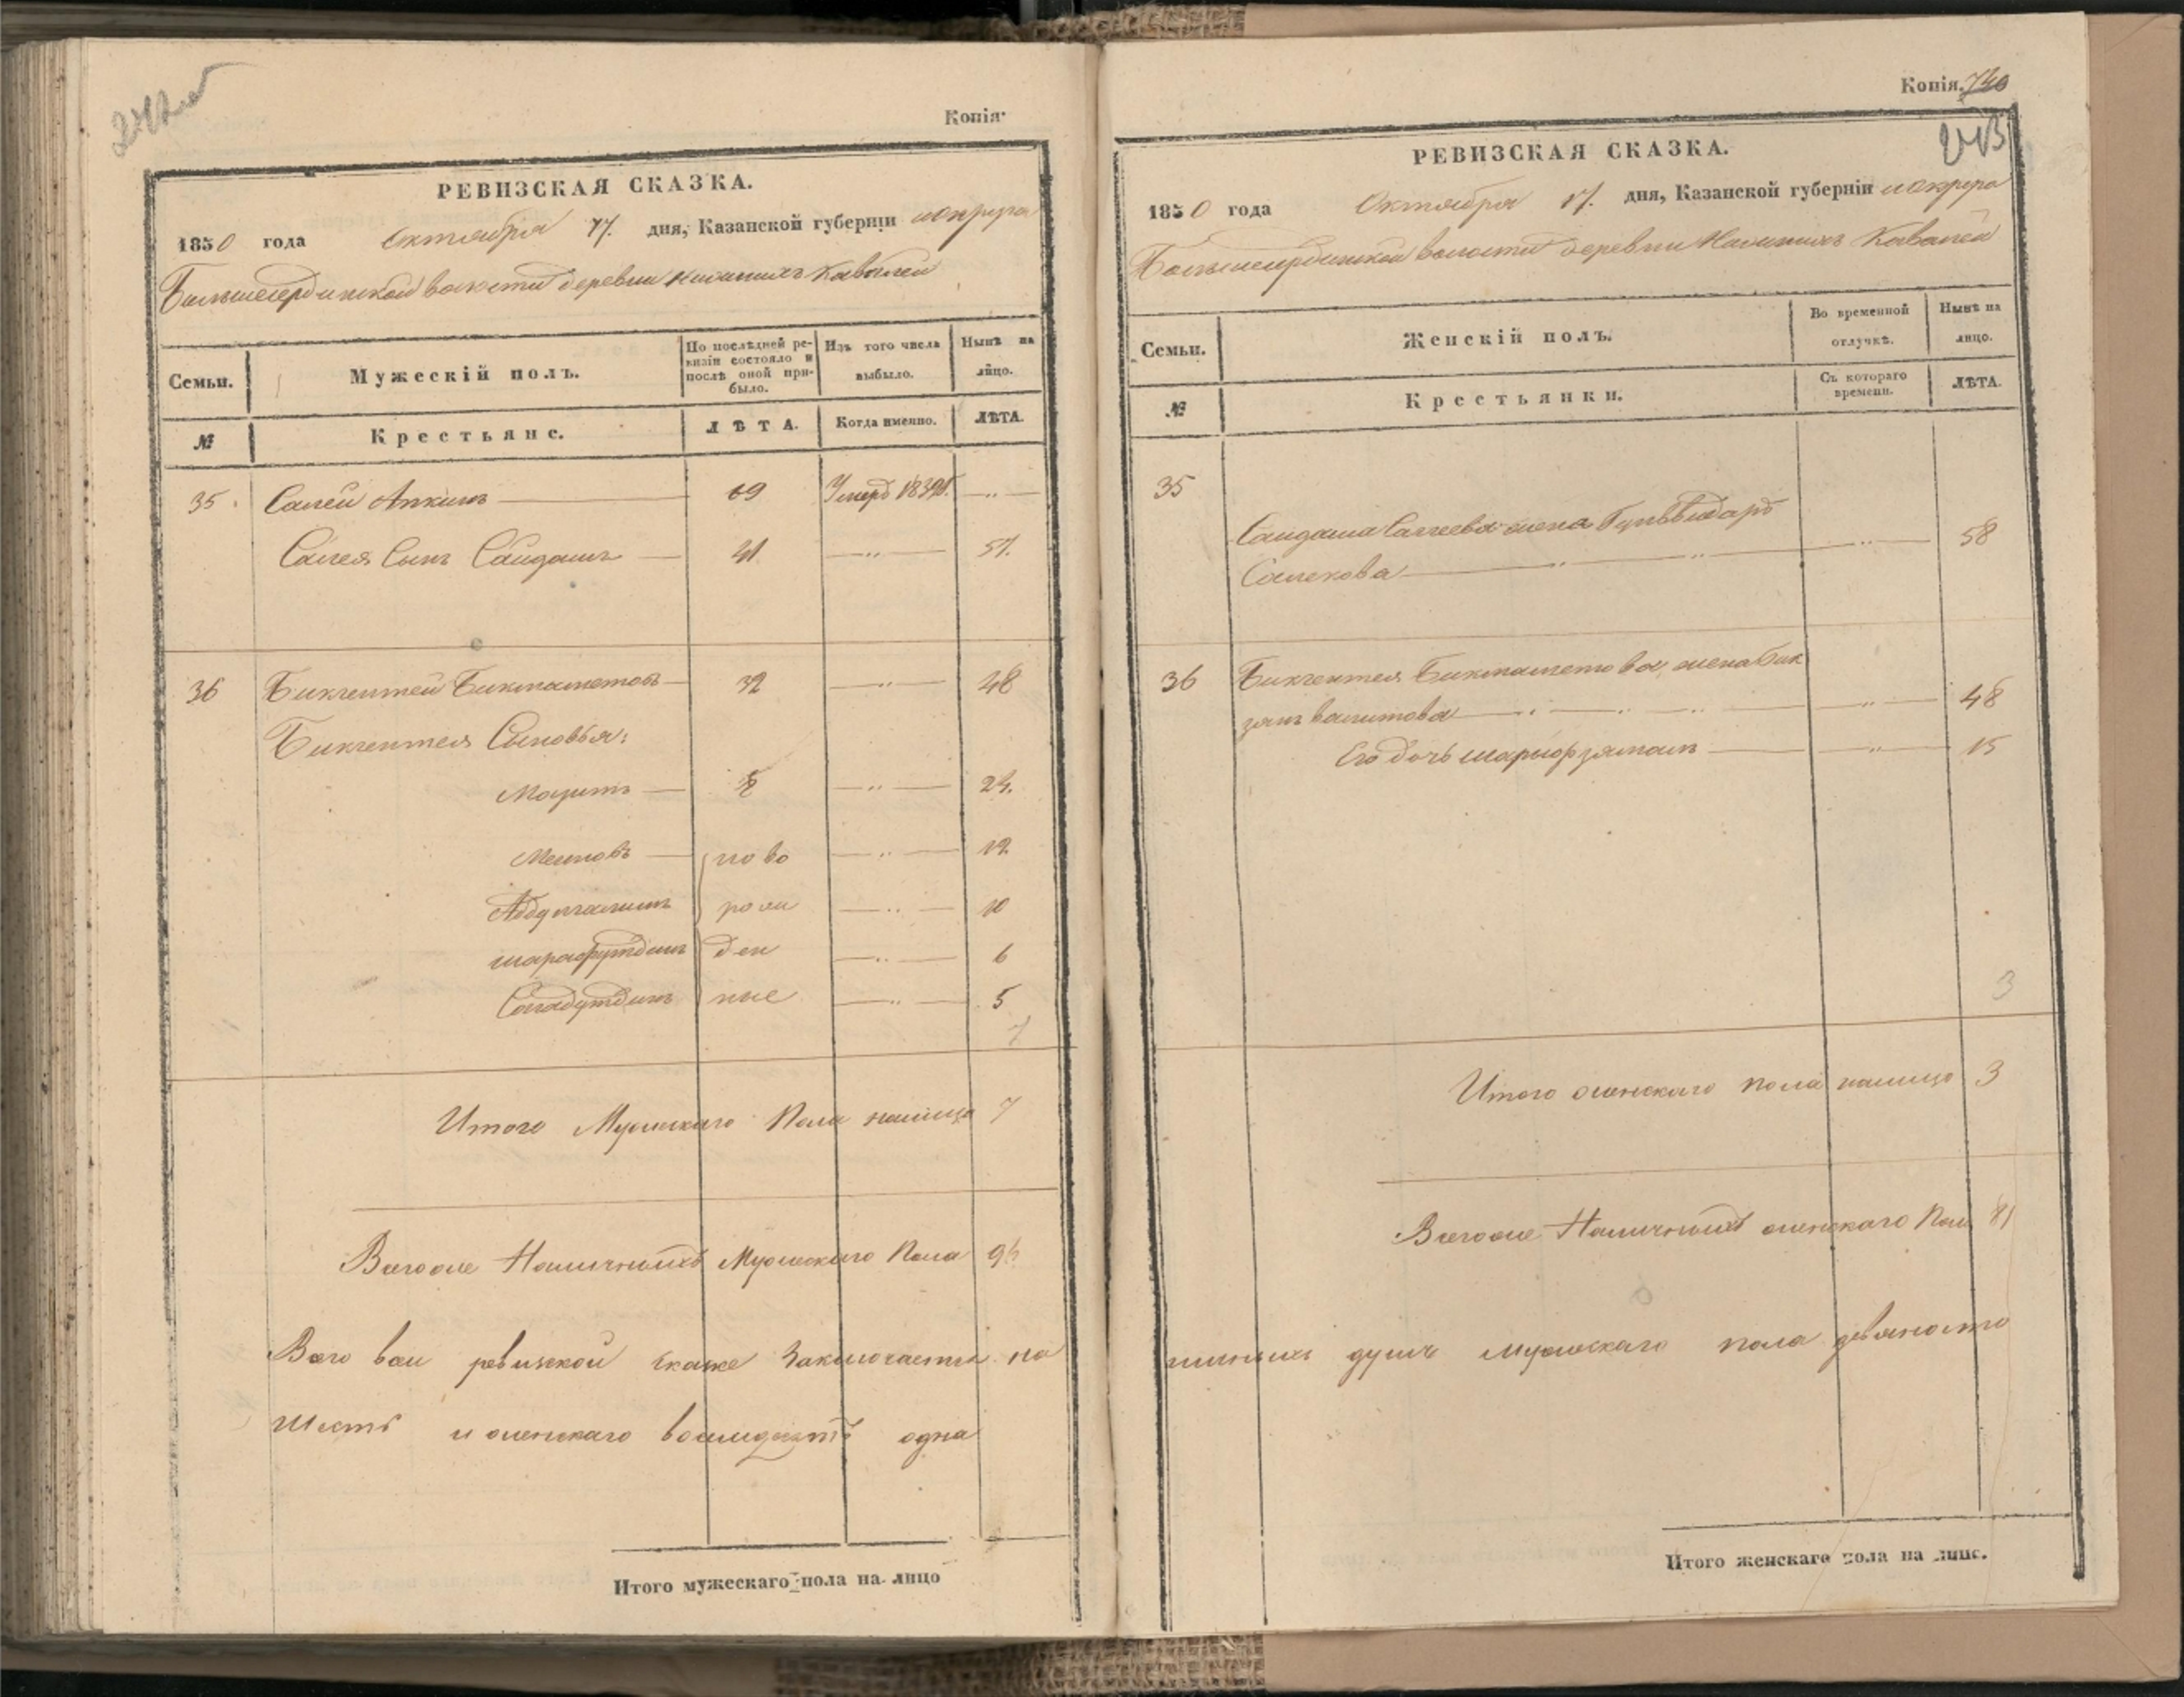 242 об
Копія
РЕВИЗСКАЯ СКАЗКА.
1850 года Октября 17. дня, Казанской губерніи и округа
Большесердинской волости деревни Нижнихъ Кавалей
Семьи.
Мужескій полъ.
По послѣдней ре-
визіи состояло и
послѣ оной при-
было.
Изъ того числа
выбыло.
Нынѣ на
лицо.
№
Крестьяне.
ЛѢТА.
Когда именно.
ЛѢТА.
35 Салей Апкинъ 69 Умеръ 1839 г. — „ —
Салея Сынъ Сайдашъ 41 — „ — 57.
36 Бикчентей Бикташетовъ 32 — „ — 48
Бикчентея Сыновья:
8 — „ — 24.
ново — „ — 12
рож — „ — 10
Шарафутдинъ ден — „ — 6
ные — „ — 5
7
Итого Мужескаго Пола налицо 7
Всегоже Наличныхъ Мужескаго Пола 96
Всего в сей ревизской сказке Заключается на
шесть и женскаго восимдесятъ одна
Итого мужескаго пола на лицо
Копія. 740
243
РЕВИЗСКАЯ СКАЗКА.
1850 года Октября 17. дня, Казанской губерніи и округа
Большесердинской волости деревни Нижнихъ Кавалей
Семьи.
Женскій полъ.
Во временной
отлучкѣ.
Нынѣ на
лицо.
№
Крестьянки.
Съ котораго
времени.
ЛѢТА.
35
Сайдаша Салеева жена
— „ — 58
36 Бикчентея Бикташетова жена Бик
— „ — 48
Его дочь Шарифзямалъ — „ — 15
3
Итого женскаго пола налицо 3
Всегоже Наличныхъ женскаго Пол 81
душъ мужескаго пола девяносто
Итого женскаго пола на лицо.